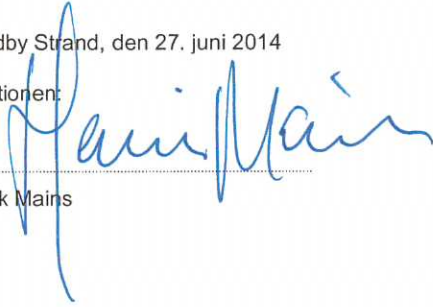 dby Strand, den 27. juni 2014
tionen:
k Mains